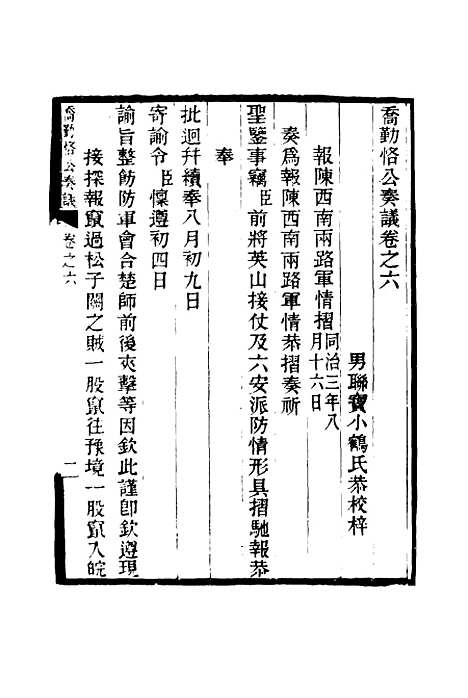 喬勤恪公奏議卷之六
男聯寶小鶴氏恭校梓
報陳西南兩路軍情摺同治三年八月十六日
奏爲報陳西南兩路軍情恭摺奏祈
聖鑒事竊臣前將英山接仗及六安派防情形具摺馳報恭
奉
批迴幷續奉八月初九日
寄諭令臣懍遵初四日
諭旨整飭防軍會合楚師前後夾擊等因欽此謹卽欽遵現
接探報竄過松子關之賊一股竄往豫境一股竄入皖
喬勤恪公奏議 卷之六 一